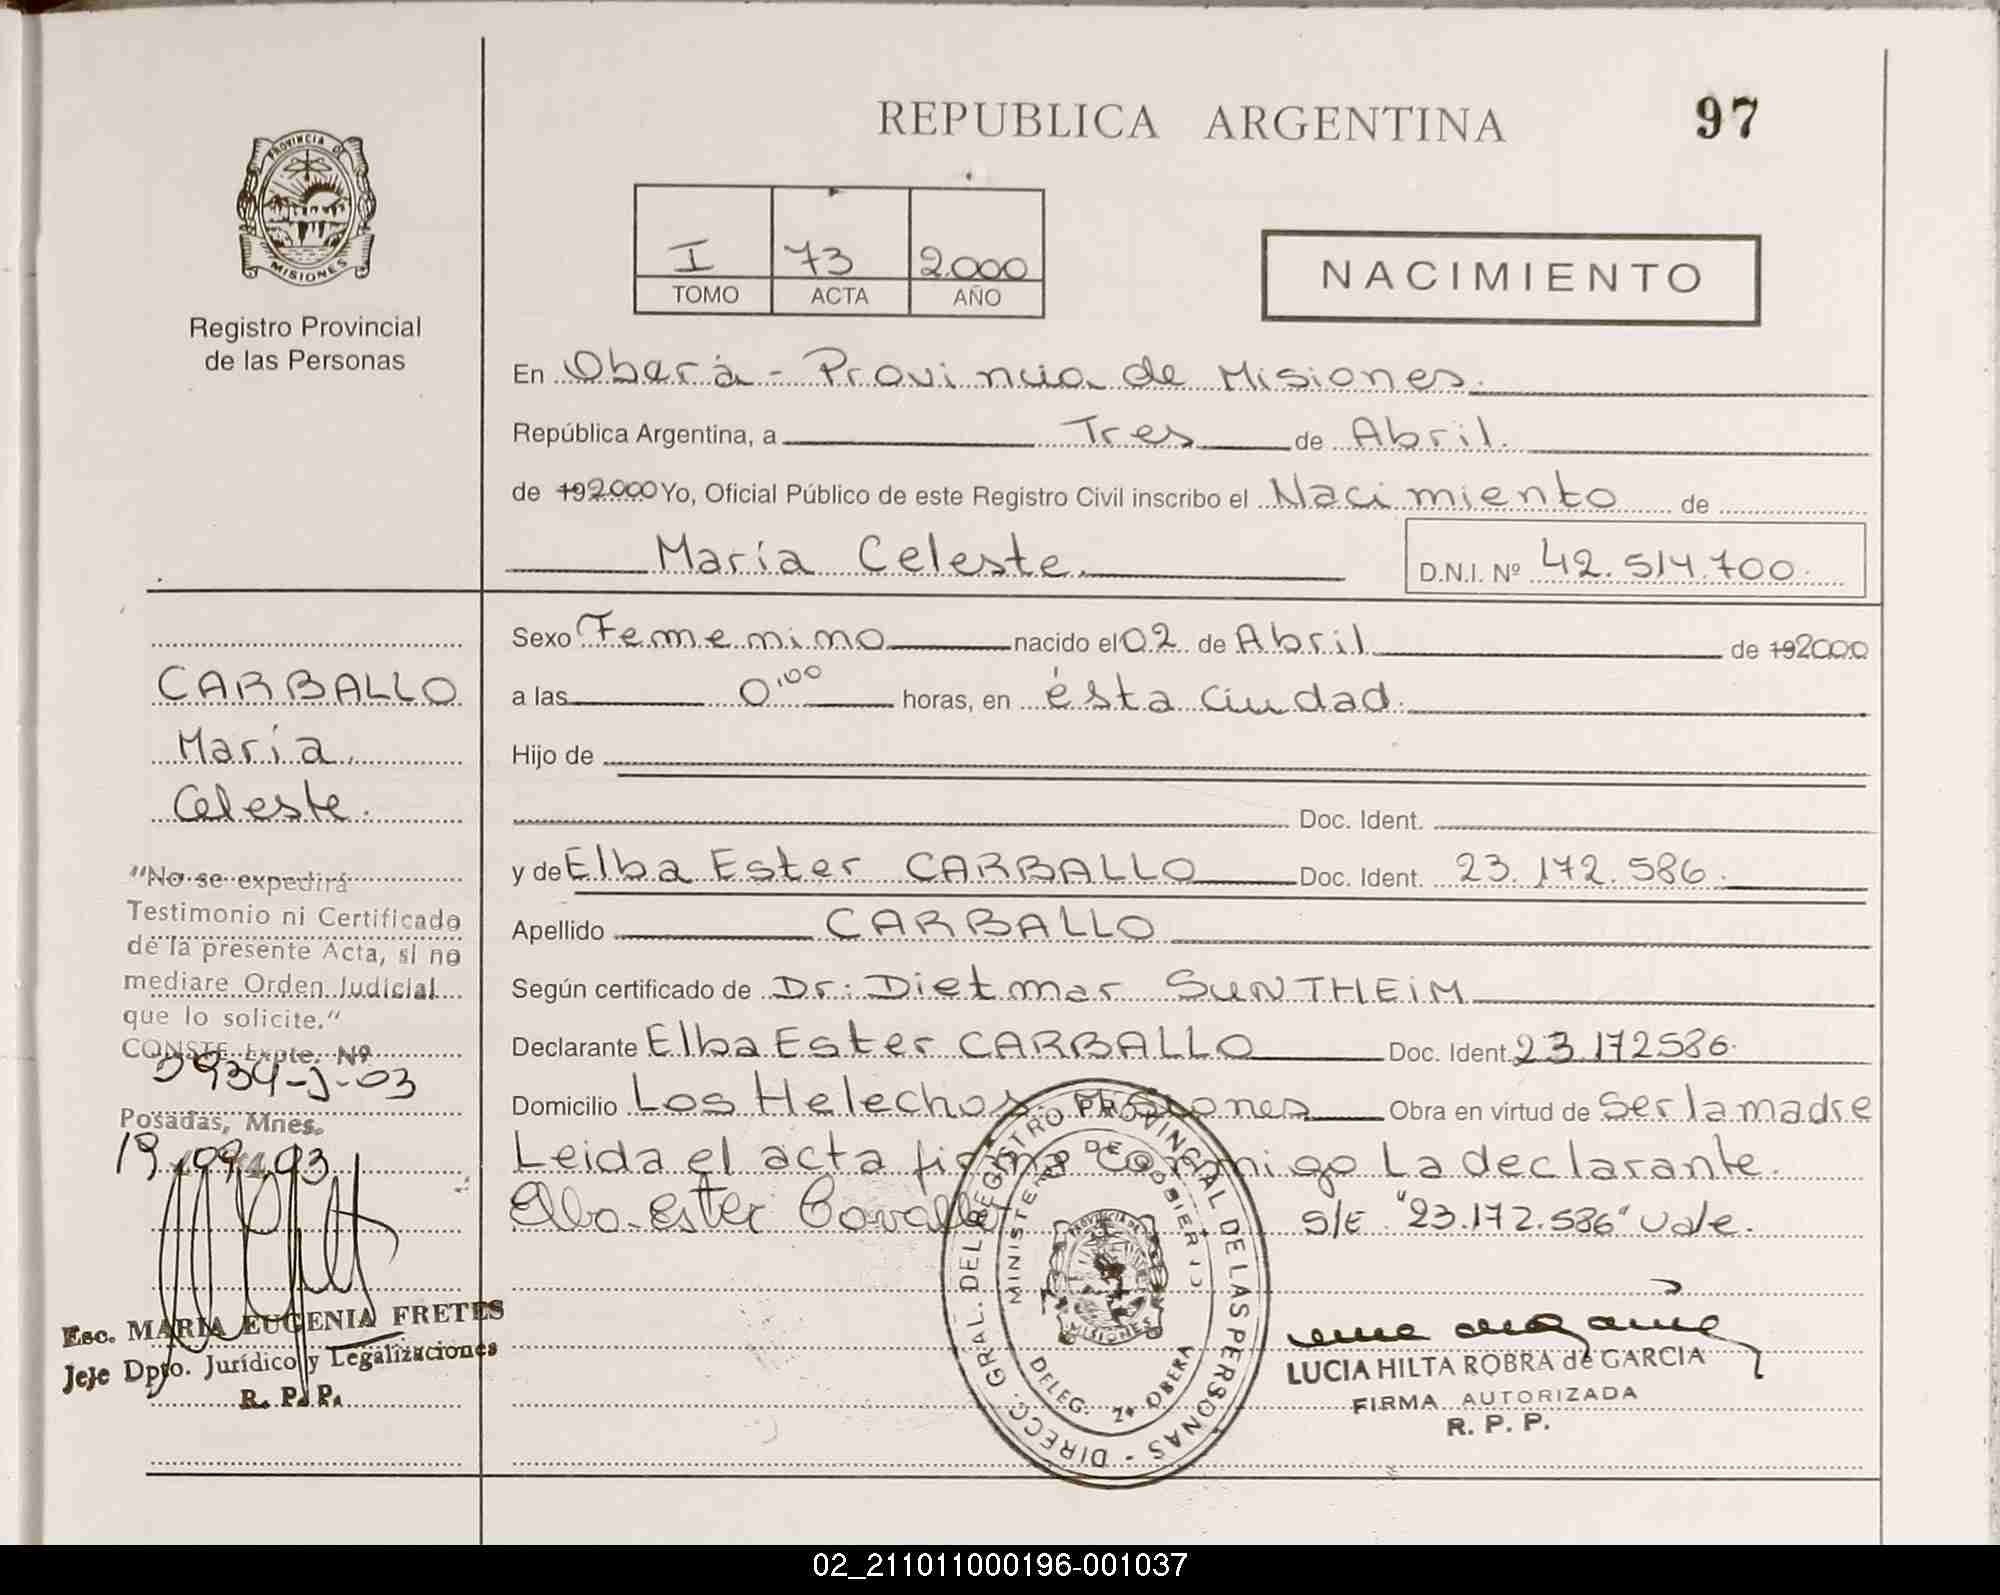 REPUBLICA ARGENTINA
97
PROVINCIA DE
MISIONES
Registro Provincial
de las Personas
I 73 2.000
TOMO ACTA AÑO
NACIMIENTO
En Oberá - Provincia de Misiones.
República Argentina, a Tres de Abril.
de 192000 Yo, Oficial Público de este Registro Civil inscribo el Nacimiento de
María Celeste.
D.N.I. Nº 42.514.700.
Sexo Femenino nacido el 02 de Abril de 192000
a las 0,00 horas, en ésta ciudad.
Hijo de
Doc. Ident.
y de Elba Ester CARBALLO Doc. Ident. 23.172.586.
Apellido CARBALLO
Según certificado de Dr: Dietmar SUNTHEIM
Declarante Elba Ester CARBALLO Doc. Ident. 23.172586.
Domicilio Los Helechos. Misiones Obra en virtud de Ser la madre
Leida el acta firma conmigo La declarante.
Elba Ester
S/E "23.172.586" Vale.
CARBALLO
María
Celeste.
"No se expedirá
Testimonio ni Certificado
de la presente Acta, si no
mediare Orden Judicial
que lo solicite."
CONSTE Expte. Nº
934-J-03
Posadas, Mnes.
19.09.03
Esc. MARIA EUGENIA FRETES
Jefe Dpto. Jurídico y Legalizaciones
R. P. P.
DIRECC. GRAL. DEL REGISTRO PROVINCIAL DE LAS PERSONAS -
MINISTERIO DE GOBIERNO
PROVINCIA DE
MISIONES
DELEG. 2ª OBERA
LUCIA HILTA ROBRA de GARCIA
FIRMA AUTORIZADA
R. P. P.
02_211011000196-001037